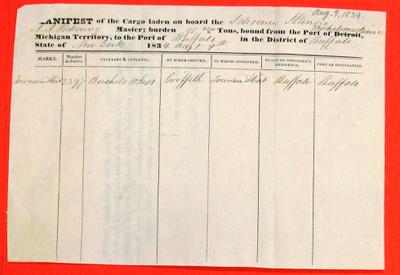 Aug. 9, 1834
MANIFEST of the Cargo laden on board the Schooner
Master; burden Tons, bound from the Port of Detroit,
Michigan Territory, to the Port of Buffalo in the District of Buffalo
State of New York 1834 Augt 9th
MARKS. Number inclusive. PACKAGES & CONTENTS. BY WHOM SHIPPED. TO WHOM CONSIGNED. PLACE OF CONSIGNEE'S RESIDENCE. PORT OF DESTINATION.
2397 Bushels Wheat Griffith Buffalo Buffalo